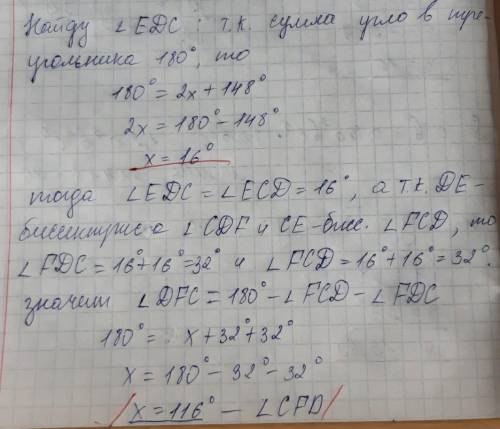 Найду ∠EDC : т.к. сумма угло в тре-
угольника 180°, то
180° = 2x + 148°
2x = 180° - 148°
x = 16°
тогда ∠EDC = ∠ECD = 16°, а т.к. DE-
биссектриса ∠CDF и CE-бисс. ∠FCD, то
∠FDC = 16° + 16° = 32° и ∠FCD = 16° + 16° = 32°.
значит ∠DFC = 180° - ∠FCD - ∠FDC
180° = x + 32° + 32°
x = 180° - 32° - 32°
/x = 116° - ∠CFD/